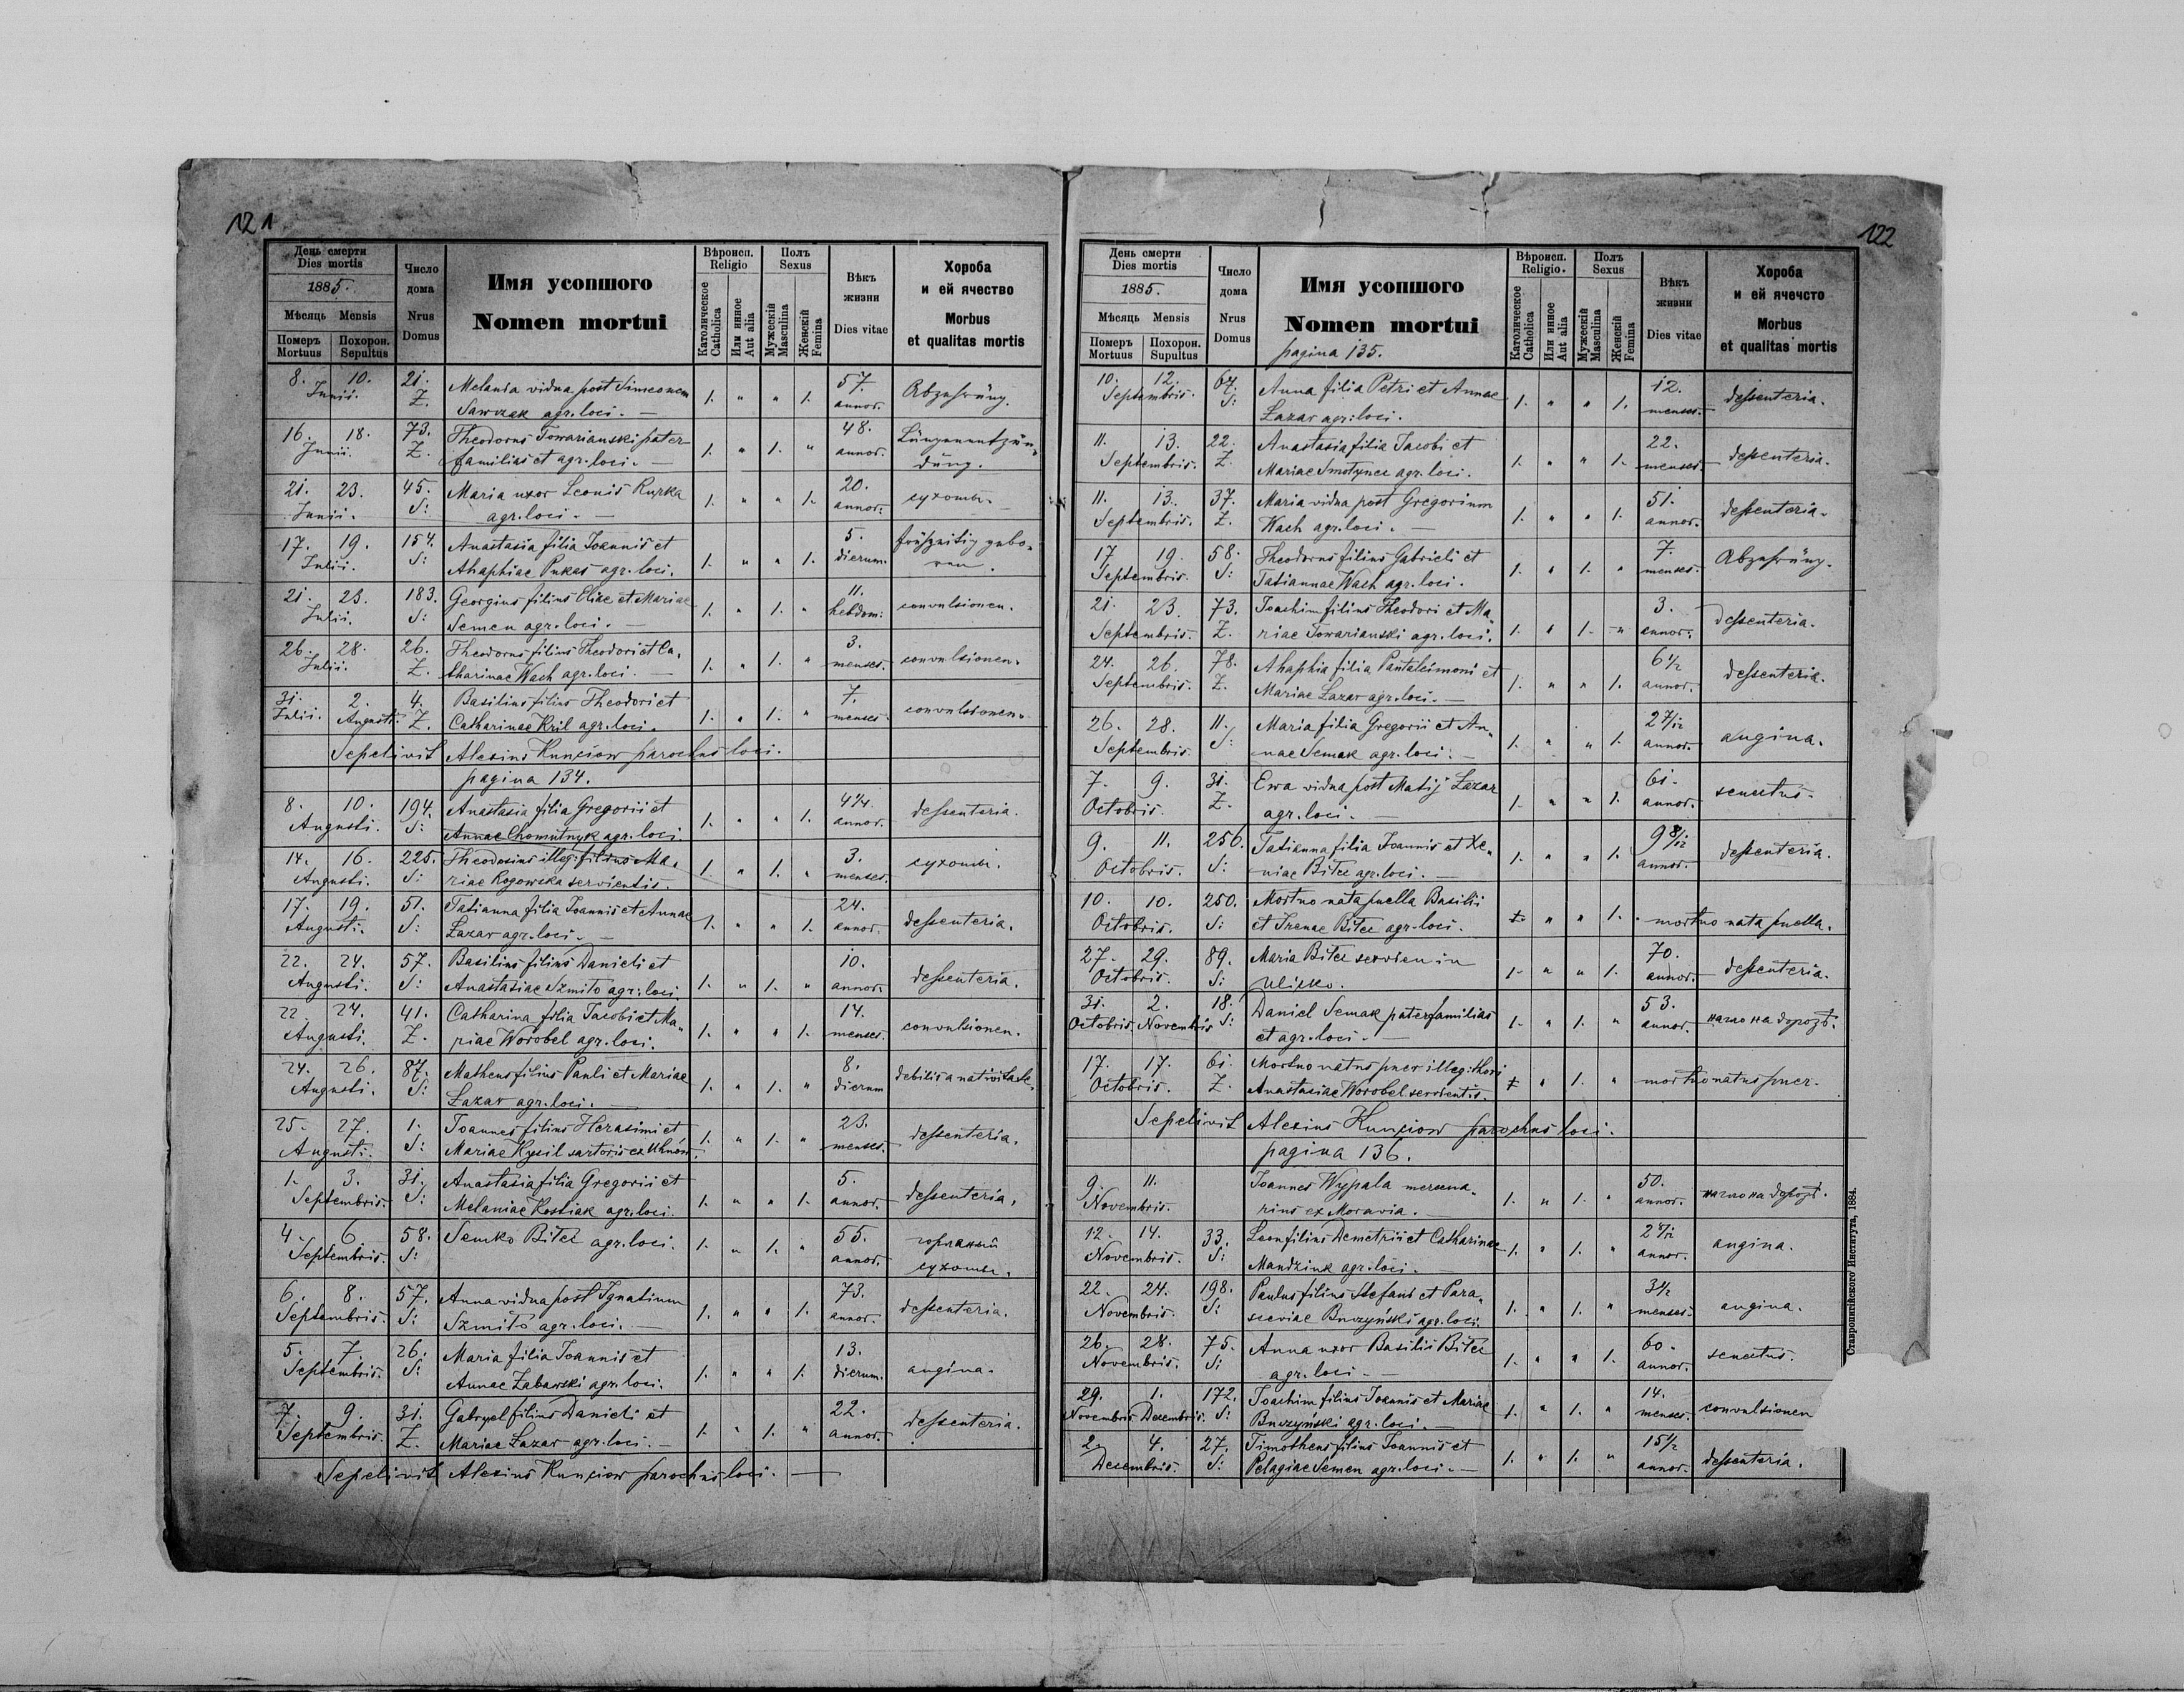 121
День смерти
Dies mortis
1885.
Мѣсяць Mensis
Померъ Mortuus
Похорон. Sepultus
Число дома
Nrus Domus
Имя усопшого
Nomen mortui
Вѣроисп.
Religio
Католическое Catholica
Или инное Aut alia
Полъ
Sexus
Мужескій Masculina
Женскій Femina
Вѣкъ жизни
Dies vitae
Хороба
и ей ячество
Morbus
et qualitas mortis
8. 10. 21. Melania vidua post Simeonem 57.
Junii. Z. Sawczak agr. loci. — 1. " " 1. annor. Abzehrüng.
16. 18. 73. Theodorus Towarianski pater 48. Lüngenentzün
Junii. Z. familias et agr. loci. — 1. " 1. " annor. düng.
21. 23. 45. Maria uxor Leonis Ruzka 20.
Junii. S: agr. loci. — 1. " " 1. annor. сухоты.
17. 19. 154. Anastasia filia Joannis et 5. frühzeitig gebo
Julii. S: Ahaphiae Pukas agr. loci. 1. " " 1. dierum. ren.
21. 23. 183. Georgius filius Eliae et Mariae 11.
Julii. S: Semen agr. loci. — 1. " 1. " hebdom: convulsionen.
26. 28. 26. Theodorus filius Theodori et Ca 3.
Julii. Z. tharinae Wach agr. loci. 1. " 1. " menses. convulsionen.
31. 2. 4. Basilius filius Theodori et 7.
Julii. Augusti. Z. Catharinae Kril agr. loci. 1. " 1. " menses. convulsionen.
Sepelivit Alexius Kunciow parochus loci.
pagina 134.
8. 10. 194. Anastasia filia Gregorii et 4 1/4.
Augusti. S: Annae Chomutnyk agr. loci 1. " " 1. annor. dessenteria.
14. 16. 225. Theodosius illeg: filius Ma 3.
Augusti. S: riae Rogowska servientis. 1. " 1. " menses. сухоты.
17. 19. 51. Tatianna filia Joannis et Annae 24.
Augusti. S: Lazar agr. loci. — 1. " " 1. annor. dessenteria.
22. 24. 57. Basilius filius Danieli et 10.
Augusti. S: Anastasiae Szmilo agr: loci 1. " 1. " annor. dessenteria.
22. 24. 41. Catharina filia Jacobi et Ma 14.
Augusti. Z. riae Worobel agr. loci. 1. " " 1. menses. convulsionen.
24. 26. 87. Matheus filius Pauli et Mariae 8.
Augusti. S: Lazar agr. loci. — 1. " 1. " dierum debilis a nativitate
25. 27. 1. Joannes filius Herasimi et 23.
Augusti. S: Mariae Kysil sartoris ex Uhnów. 1. " 1. " menses. dessenteria.
1. 3. 31. Anastasia filia Gregorii et 5.
Septembris. S: Melaniae Kostiak agr. loci. 1. " " 1. annor. dessenteria.
4. 6. 58. Semko Bilec agr. loci. 1. " 1. " 55.
Septembris. S: annor. сухоты.
6. 8. 57. Anna vidua post Ignatium 73.
Septembris. S: Szmilo agr. loci. — 1. " " 1. annor. dessenteria.
5. 7. 26. Maria filia Joannis et 13.
Septembris. S: Annae Zabawski agr. loci. 1. " " 1. dierum. angina.
7. 9. 31. Gabryel filius Danieli et 22.
Septembris. Z. Mariae Lazar agr. loci. — 1. " 1. " annor. dessenteria.
Sepelivit Alexius Kunciow parochus loci. —
122
День смерти
Dies mortis
1885.
Мѣсяць Mensis
Померъ Mortuus
Похорон. Supultus
Число дома
Nrus Domus
Имя усопшого
Nomen mortui
pagina 135.
Вѣроисп.
Religio.
Католическое Catholica
Или инное Aut alia
Полъ
Sexus
Мужескій Masculina
Женскій Femina
Вѣкъ жизни
Dies vitae
Хороба
и ей ячечсто
Morbus
et qualitas mortis
10. 12. 67. Anna filia Petri et Annae 12.
Septembris. S: Lazar agr: loci. 1. " " 1. menses. dessenteria.
11. 13. 22. Anastasia filia Jacobi et 22.
Septembris. Z. Mariae Smolynec agr. loci. 1. " " 1. menses. dessenteria.
11. 13. 37. Maria vidua post Gregorium 51.
Septembris. Z. Wach agr. loci. — 1. " " 1. annor. dessenteria.
17 19. 58. Theodorus filius Gabrieli et 7.
Septembris. S: Tatiannae Wach agr. loci. 1. " 1. " menses. Abzehrüng.
21. 23. 73. Joachim filius Theodori et Ma 3.
Septembris. Z. riae Towarianski agr. loci. 1. " 1. " annor. dessenteria.
24. 26. 78. Ahaphia filia Pantaleimoni et 6 1/2
Septembris. Z. Mariae Lazar agr. loci. — 1. " " 1. annor. dessenteria.
26. 28. 11. Maria filia Gregorii et An 2 7/12
Septembris. S: nae Semak agr. loci. — 1. " " 1. annor. angina.
7. 9. 31. Ewa vidua post Matij Lazar 61.
Octobris. Z. agr. loci. — 1. " " 1. annor. senectus.
9. 11. 256. Tatianna filia Joannis et Xe 9 8/12
Octobris. S: niae Bilec agr. loci. — 1. " " 1. annor. dessenteria.
10. 10. 250. Mortuo nata puella Basilii
Octobris. S: et Irenae Bilec agr. loci. 1. " " 1. mortuo nata puella.
27. 29. 89. Maria Bilec servien in 70.
Octobris. S: 1. " " 1. annor. dessenteria.
31. 2. 18. Daniel Semak paterfamilias 53.
Octobris. Novembris S: et agr. loci. — 1. " 1. " annor. нагло на дорозѣ.
17. 17. 61. Mortuo natus puer illeg: thori
Octobris. Z. Anastasiae Worobel servientis. 1. " 1. " mortuo natus puer.
Sepelivit Alexius Kunciow parochus loci.
pagina 136.
9. 11. Joannes Wypala mercena 50.
Novembris. rius ex Moravia. — 1. " 1. " annor. нагло на дорозѣ.
12. 14. 33. Leon filius Demetrii et Catharinae 2 8/12
Novembris. S: Mandziuk agr. loci. — 1. " 1. " annor. angina.
22. 24. 198. Paulus filius Stefani et Para 3 1/2
Novembris. S: sceviae Buczyński agr. loci. 1. " 1. " menses. angina.
26. 28. 75. Anna uxor Basilii Bilec 60.
Novembris. S: agr. loci. — 1. " " 1. annor. senectus.
29. 1. 172. Joachim filius Joannis et Mariae 14.
Novembris Decembris. S: Buczyński agr. loci. — 1. " 1. " menses. convulsionen
2. 4. 27. Timotheus filius Joannis et 15 1/2
Decembris. S: Pelagiae Semen agr. loci. — 1. " 1. " annor. dessenteria.
Ставропигійского Института, 1884.